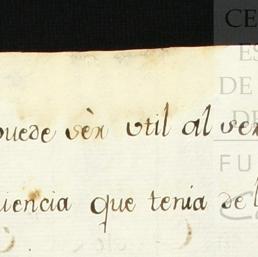 CE
ES
DE
DE
FU
puede sèr vtil al ser
uiencia que tenia de l